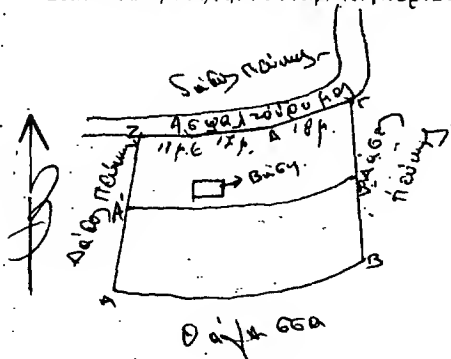 Δάσος Πεύκης
Ασφαλτόδρομος
Ζ
11μ. Ε 17μ. Δ 18μ. Γ
Δάσος Πεύκης
Βάση
Δάσος Πεύκης
Α
Β
Θάλασσα